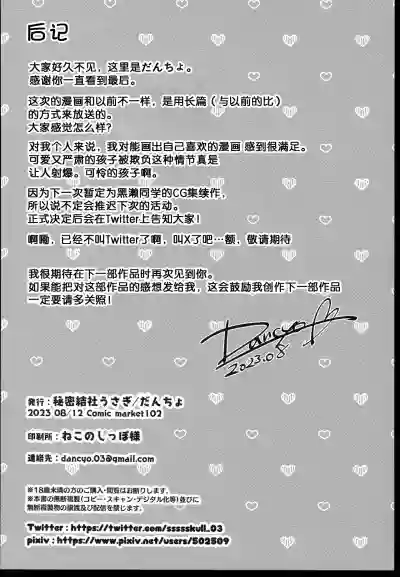 后记
大家好久不见，这里是だんちょ。
感谢你一直看到最后。
这次的漫画和以前不一样，是用长篇（与以前的比）
的方式来放送的。
大家感觉怎么样？
对我个人来说，我对能画出自己喜欢的漫画 感到很满足。
可爱又严肃的孩子被欺负这种情节真是
让人射爆。可怜的孩子啊。
因为下一次暂定为黑濑同学的CG集续作，
所以说不定会推迟下次的活动。
正式决定后会在Twitter上告知大家！
啊嘞，已经不叫Twitter了啊，叫X了吧…额，敬请期待
我很期待在下一部作品时再次见到你。
如果能把对这部作品的感想发给我，这会鼓励我创作下一部作品
一定要请多关照！
Dancyo
2023.08
発行：秘密結社うさぎ/だんちょ
2023 08/12 Comic market102
印刷所：ねこのしっぽ様
連絡先：dancyo.03@gmail.com
※18歳未満の方のご購入・閲覧はお断りします。
※本書の無断複製(コピー・スキャン・デジタル化等)並びに
無断複製物の譲渡及び配信を禁じます。
Twitter：https://twitter.com/sssskull_03
pixiv：https://www.pixiv.net/users/502509